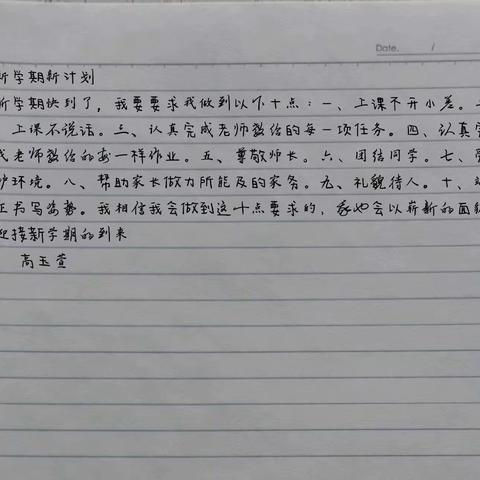 Date. /
新学期新计划
新学期快到了，我要要求我做到以下十点：一、上课不开小差。二
、上课不说话。三、认真完成老师教给的每一项任务。四、认真完
成老师教给的每一样作业。五、尊敬师长。六、团结同学。七、爱
护环境。八、帮助家长做力所能及的家务。九、礼貌待人。十、
正书写姿势。我相信我会做到这十点要求的，我也会以崭新的面貌
迎接新学期的到来
高玉萱